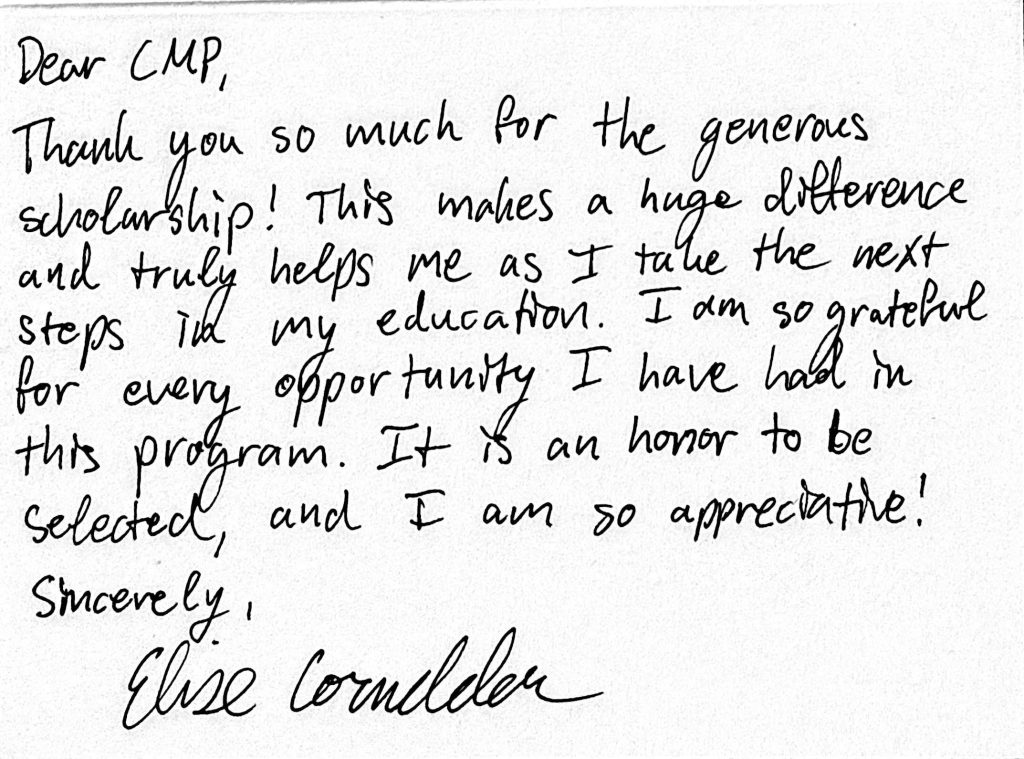 Dear CMP,
Thank you so much for the generous
scholarship! This makes a huge difference
and truly helps me as I take the next
steps in my education. I am so grateful
for every opportunity I have had in
this program. It is an honor to be
selected, and I am so appreciative!
Sincerely,
Elise